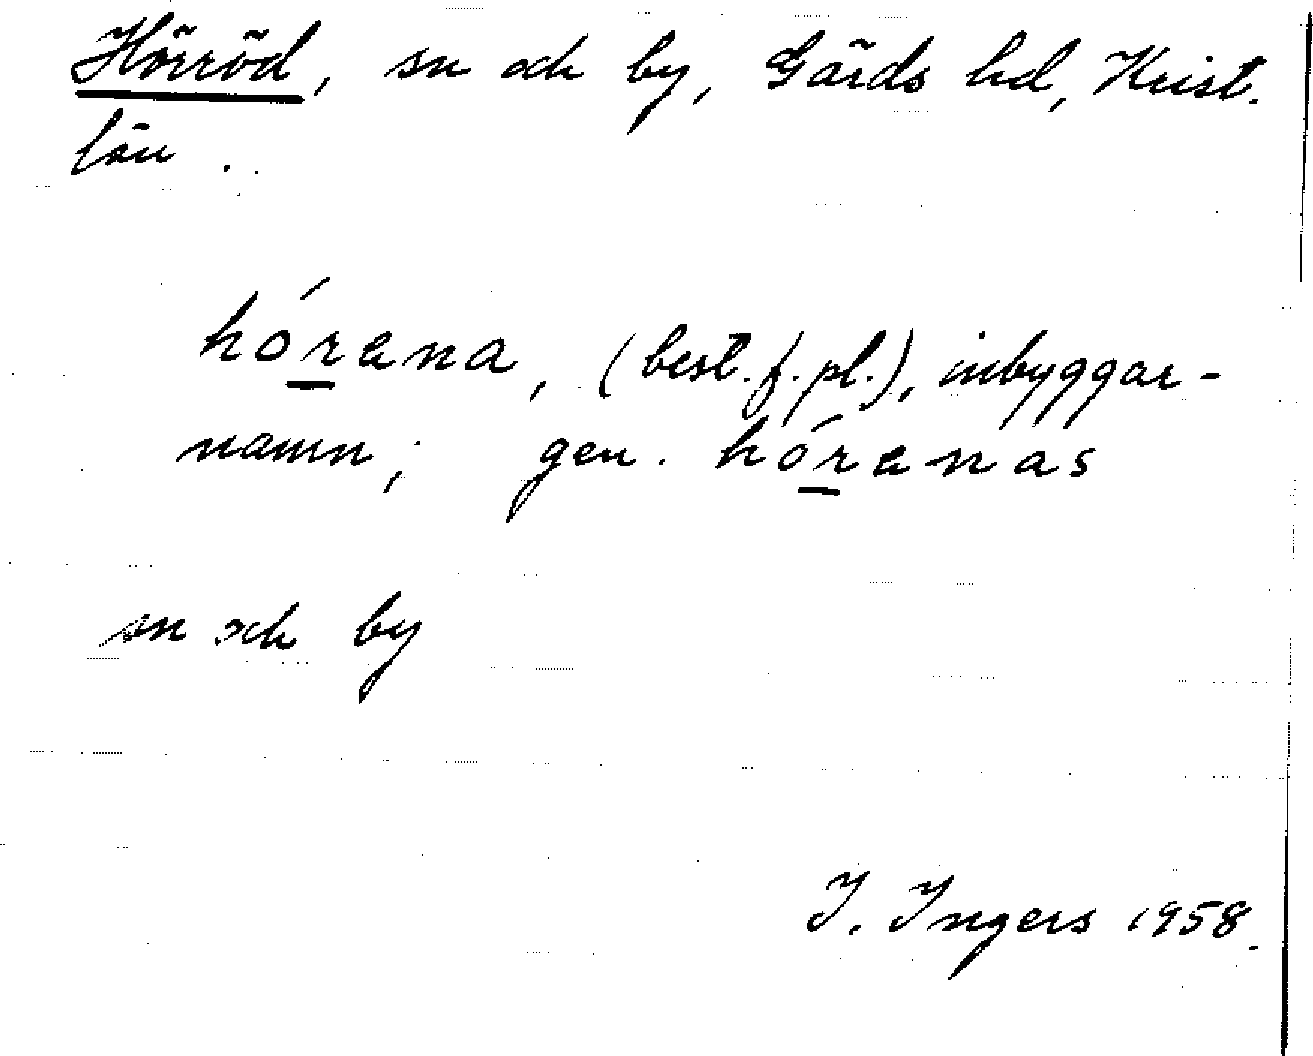 Hörröd, sn och by, Gärds hd, Krist.
län.
hó̱rana, (best. f. pl.), inbyggar-
namn; gen. hó̱ranas
sn och by
I. Ingers 1958.